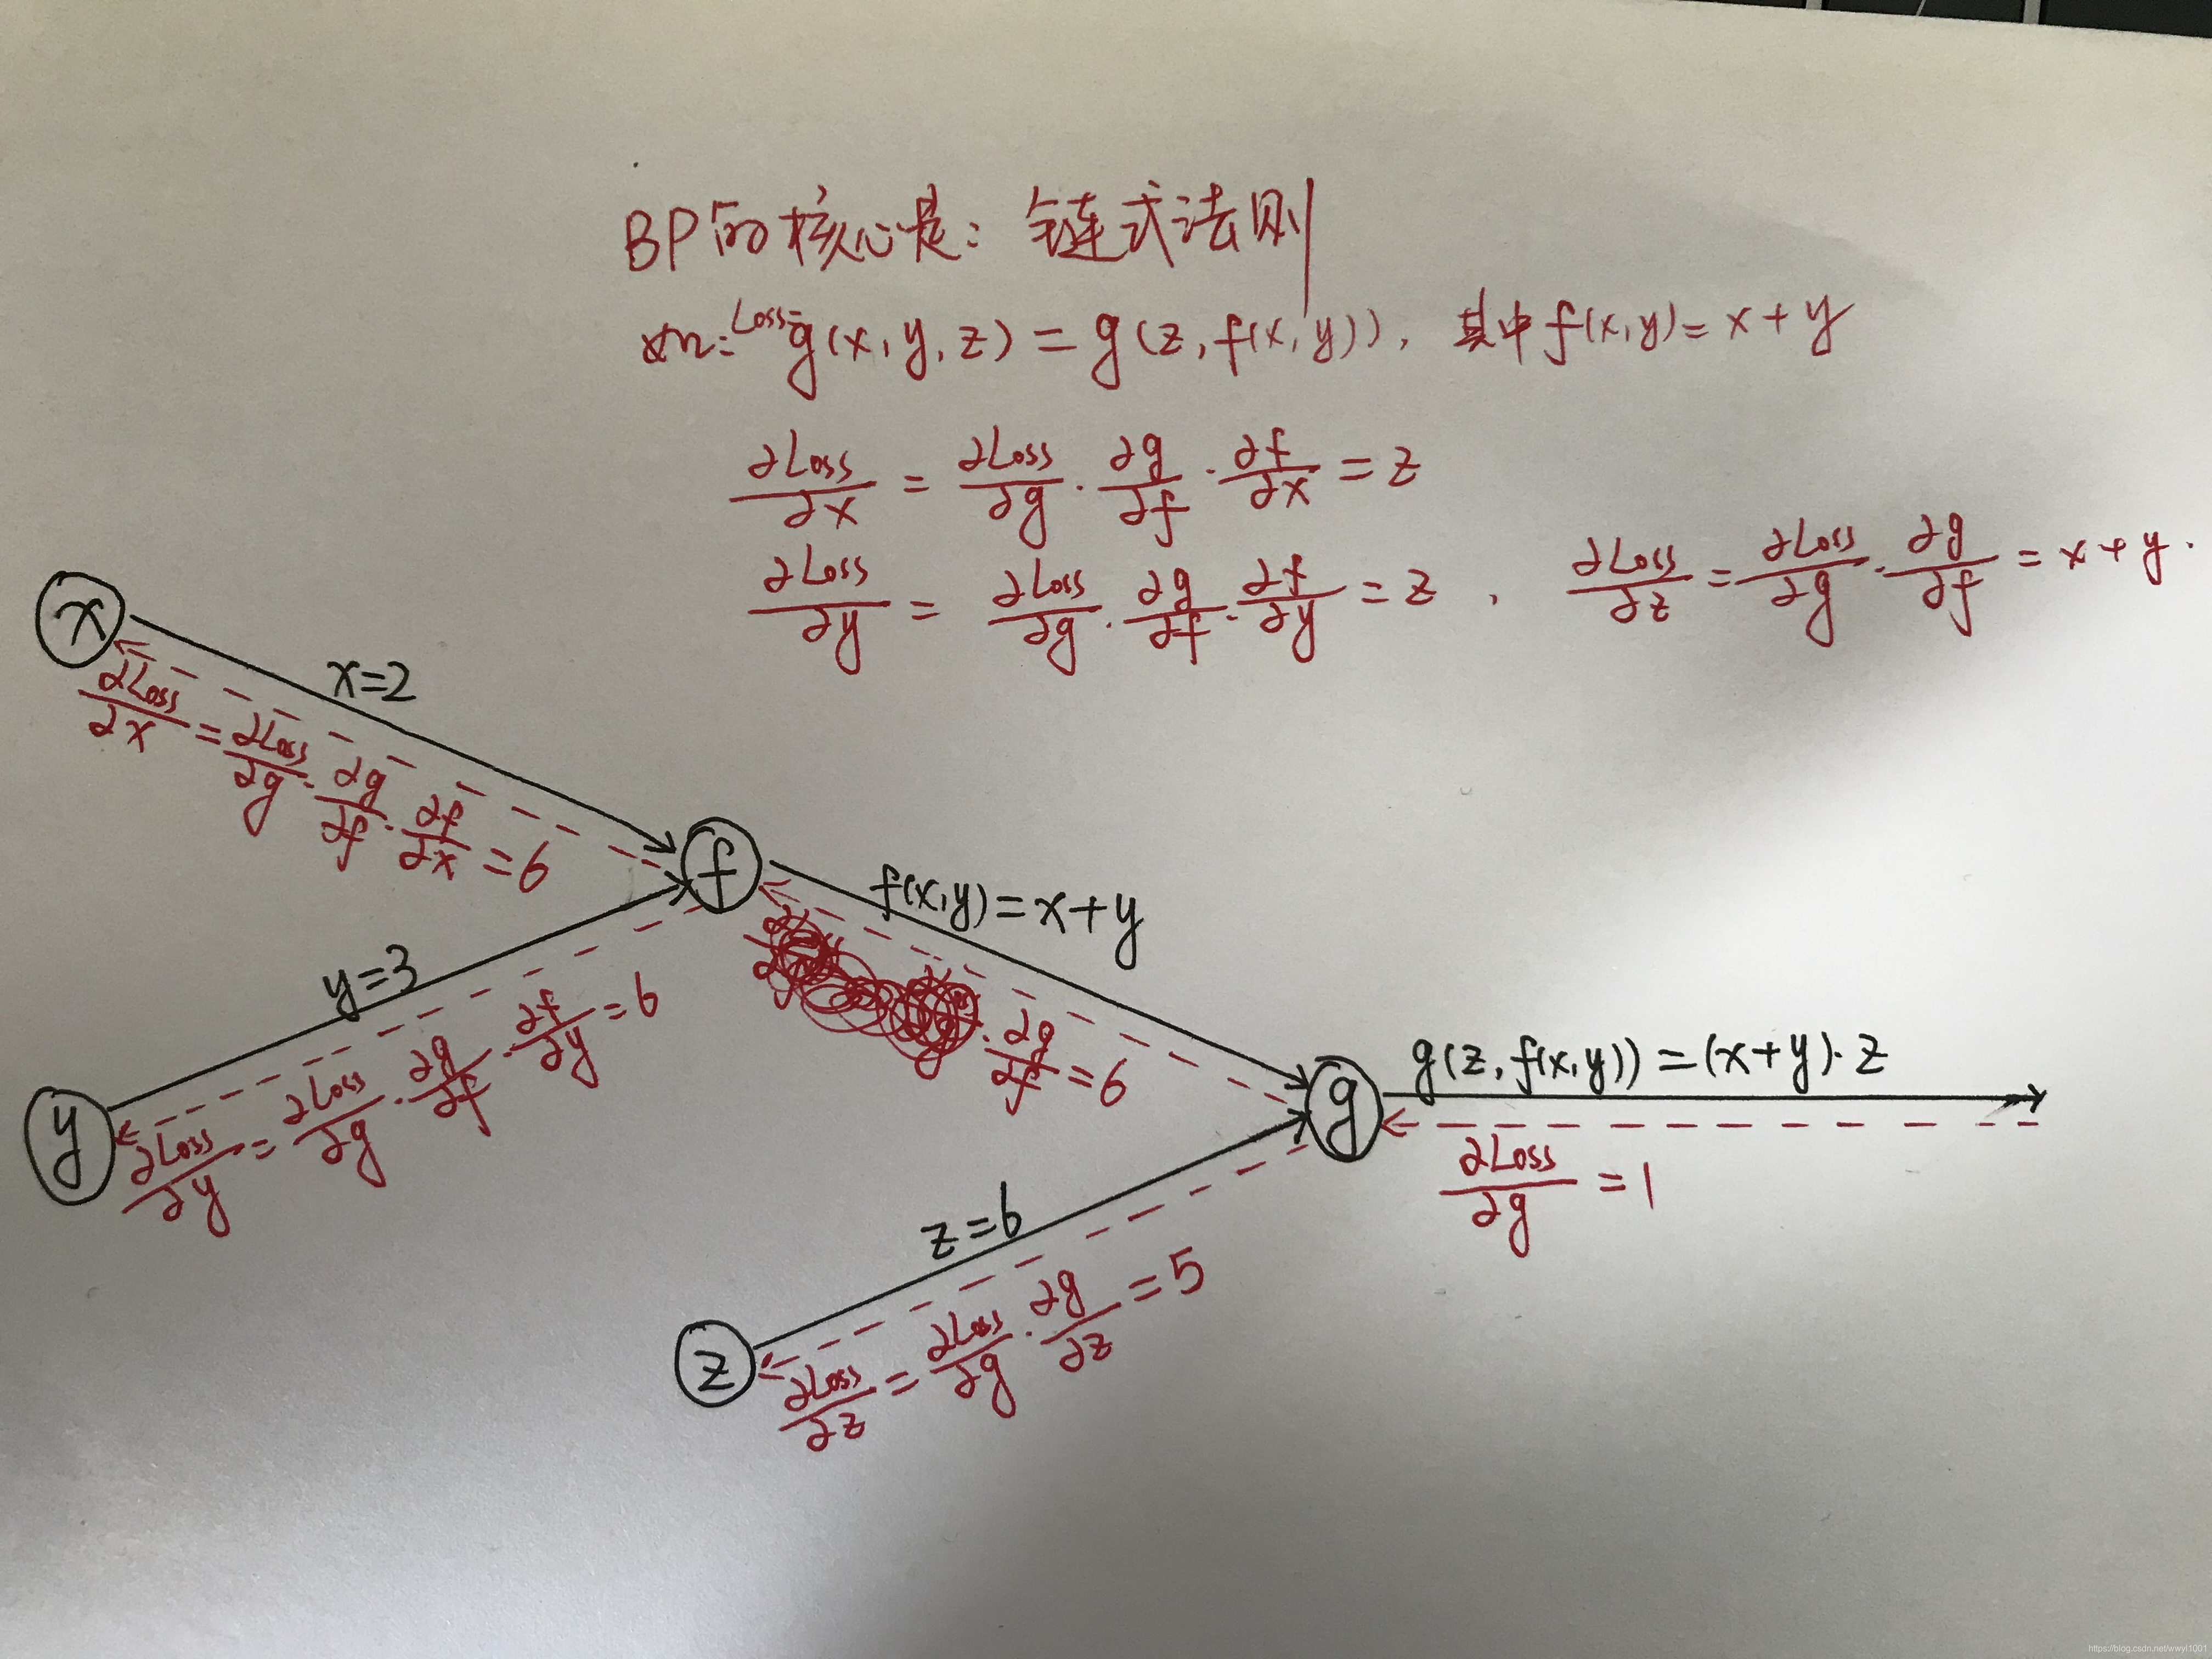 BP的核心是：链式法则
如：Loss=g(x,y,z)=g(z,f(x,y)), 其中f(x,y)=x+y
∂Loss/∂x = ∂Loss/∂g · ∂g/∂f · ∂f/∂x = z
∂Loss/∂y = ∂Loss/∂g · ∂g/∂f · ∂f/∂y = z , ∂Loss/∂z = ∂Loss/∂g · ∂g/∂f = x+y.
x
x=2
∂Loss/∂x = ∂Loss/∂g · ∂g/∂f · ∂f/∂x = 6
f
f(x,y)=x+y
· ∂g/∂f = 6
y=3
y
∂Loss/∂y = ∂Loss/∂g · ∂g/∂f · ∂f/∂y = 6
g
g(z,f(x,y))=(x+y)·z
∂Loss/∂g = 1
z=6
z
∂Loss/∂z = ∂Loss/∂g · ∂g/∂z = 5
https://blog.csdn.net/wwyl1001